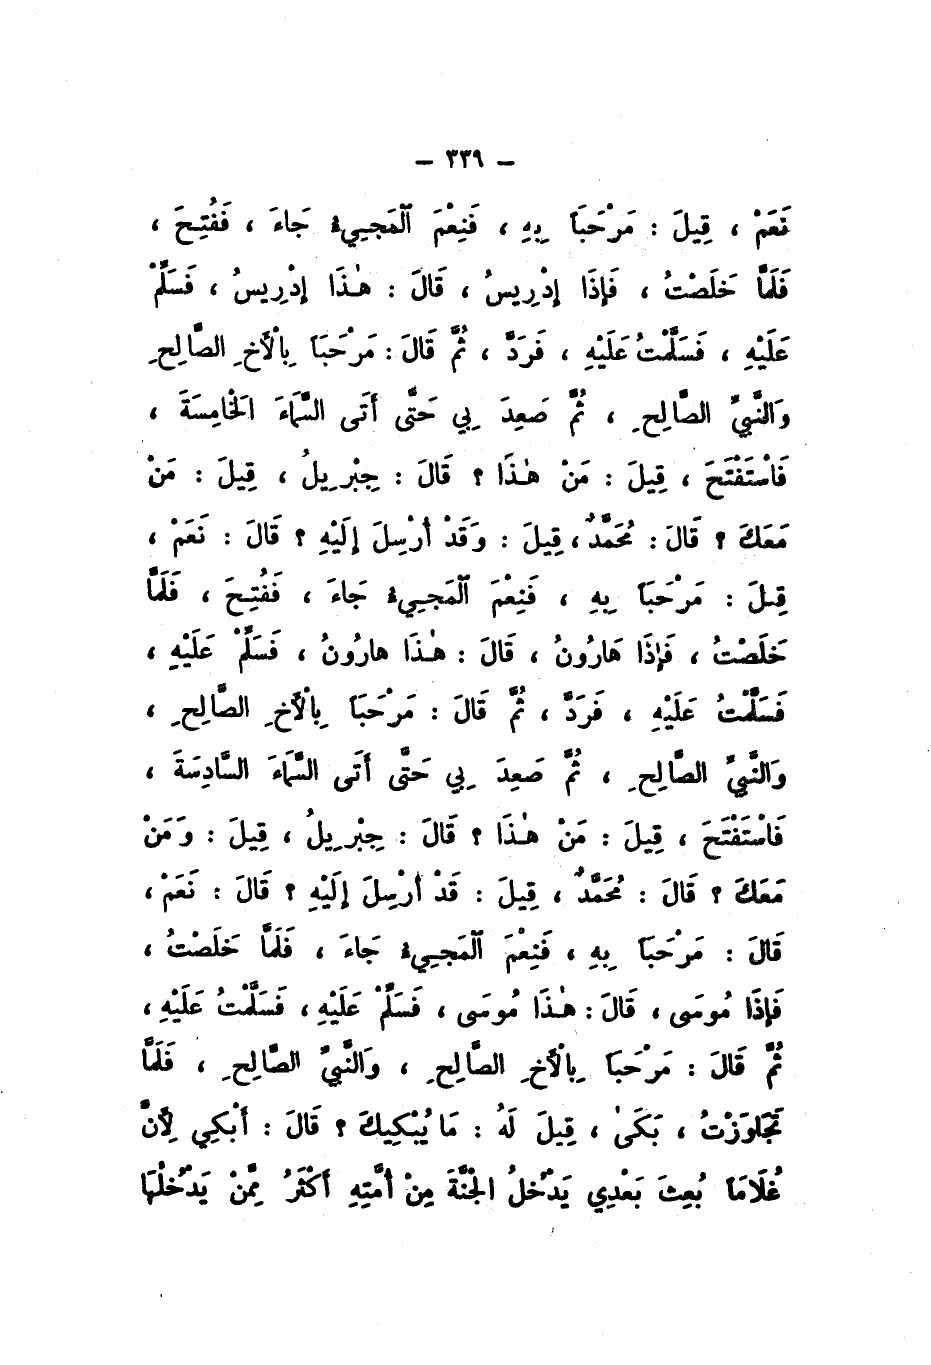 – ٣٣٩ –
نَعَمْ ، قِيلَ : مَرْحَبَاً بِهِ ، فَنِعْمَ ٱلمَجِيءُ جَاءَ ، فَفُتِحَ ،
فَلَمَّا خَلَصْتُ ، فَإِذَا إِدْرِيسُ ، قَالَ : هٰذَا إِدْرِيسُ ، فَسَلِّمْ
عَلَيْهِ ، فَسَلَّمْتُ عَلَيْهِ ، فَرَدَّ ، ثُمَّ قَالَ : مَرْحَبَاً بِالْأَخِ الصَّالِحِ
وَالنَّبِيِّ الصَّالِحِ ، ثُمَّ صَعِدَ بِي حَتَّى أَتَى السَّمَاءَ الخَامِسَةَ ،
فَاسْتَفْتَحَ ، قِيلَ : مَنْ هٰذَا ؟ قَالَ : جِبْرِيلُ ، قِيلَ : مَنْ
مَعَكَ ؟ قَالَ : مُحَمَّدٌ ، قِيلَ : وَقَدْ أُرْسِلَ إِلَيْهِ ؟ قَالَ : نَعَمْ ،
قِيلَ : مَرْحَبَاً بِهِ ، فَنِعْمَ ٱلمَجِيءُ جَاءَ ، فَفُتِحَ ، فَلَمَّا
خَلَصْتُ ، فَإِذَا هَارُونُ ، قَالَ : هٰذَا هارُونُ ، فَسَلِّمْ عَلَيْهِ ،
فَسَلَّمْتُ عَلَيْهِ ، فَرَدَّ ، ثُمَّ قَالَ : مَرْحَبَاً بِالْأَخِ الصَّالِحِ ،
وَالنَّبِيِّ الصَّالِحِ ، ثُمَّ صَعِدَ بِي حَتَّى أَتَى السَّمَاءَ السَّادِسَةَ ،
فَاسْتَفْتَحَ ، قِيلَ : مَنْ هٰذَا ؟ قَالَ : جِبْرِيلُ ، قِيلَ : وَمَنْ
مَعَكَ ؟ قَالَ : مُحَمَّدٌ ، قِيلَ : قَدْ أُرْسِلَ إِلَيْهِ ؟ قَالَ : نَعَمْ ،
قَالَ : مَرْحَبَاً بِهِ ، فَنِعْمَ ٱلمَجِيءُ جَاءَ ، فَلَمَّا خَلَصْتُ ،
فَإِذَا مُوسَى ، قَالَ : هٰذَا مُوسَى ، فَسَلِّمْ عَلَيْهِ ، فَسَلَّمْتُ عَلَيْهِ ،
ثُمَّ قَالَ : مَرْحَبَاً بِالْأَخِ الصَّالِحِ ، وَالنَّبِيِّ الصَّالِحِ ، فَلَمَّا
تَجَاوَزْتُ ، بَكَىٰ ، قِيلَ لَهُ : مَا يُبْكِيكَ ؟ قَالَ : أَبْكِي لِأَنَّ
غُلَامَاً بُعِثَ بَعْدِي يَدْخُلُ الجَنَّةَ مِنْ أُمَّتِهِ أَكْثَرُ مِمَّنْ يَدْخُلُهَا